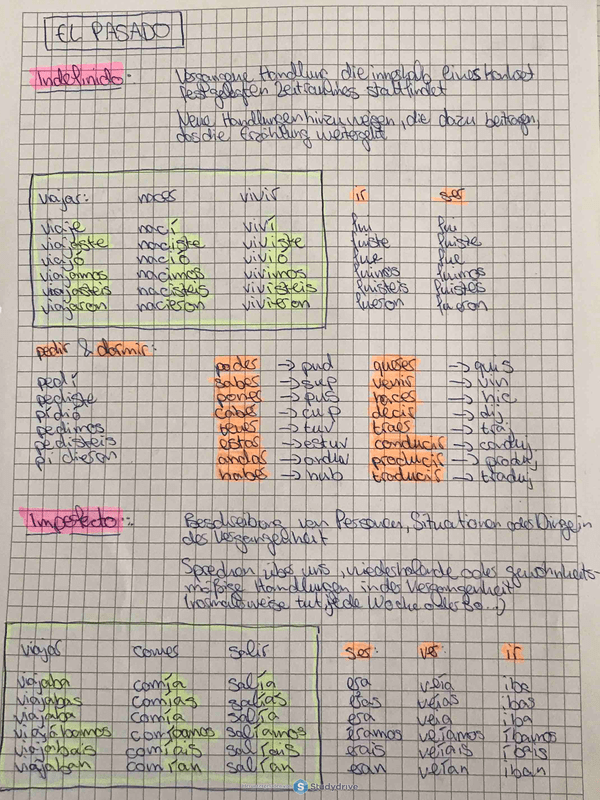 EL PASADO
Indefinido: Vergangene Handlung, die innerhalb eines konkret
festgelegten Zeitraumes stattfindet
Neue Handlungen hinzufügen, die dazu beitragen,
das die Erzählung weitergeht
viajar: nacer vivir ir ser
viaje nací viví fui fui
viajaste naciste viviste fuiste fuiste
viajó nació vivió fue fue
viajamos nacimos vivimos fuimos fuimos
viajasteis nacisteis vivisteis fuisteis fuisteis
viajaron nacieron vivieron fueron fueron
pedir & dormir:
poder → pud querer → quis
pedí saber → sup venir → vin
pediste poner → pus hacer → hic
pidió caber → cup decir → dij
pedimos tener → tuv traer → traj
pedisteis estar → estuv conducir → conduj
pidieron andar → anduv producir → produj
haber → hub traducir → traduj
Imperfecto: Beschreibung von Personen, Situationen oder Dinge in
der Vergangenheit
Sprechen über uns, wiederholende oder gewohnheits-
mäßige Handlungen in der Vergangenheit
(normalerweise tut jede Woche oder so...)
viajar comer salir ser: ver: ir
viajaba comía salía era veía iba
viajabas comías salías eras veías ibas
viajaba comía salía era veía iba
viajábamos comíamos salíamos éramos veíamos íbamos
viajabais comíais salíais erais veíais ibais
viajaban comían salían eran veían iban
Studydrive